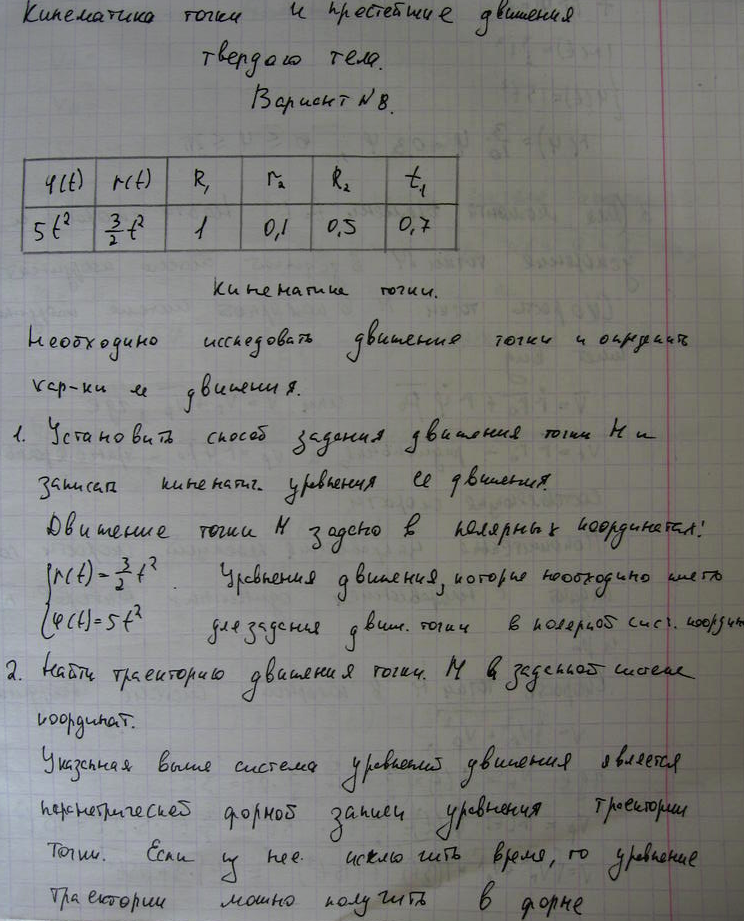 Кинематика точки и простейшие движения
твердого тела.
Вариант N 8.
φ(t) r(t) R₁ r₂ R₂ t₁
5t² 3/2 t² 1 0,1 0,5 0,7
Кинематика точки.
Необходимо исследовать движение точки и определить
хар-ки ее движения.
1. Установить способ задания движения точки М и
записать кинематич. уравнения ее движения.
Движение точки М задано в полярных координатах:
{r(t)=3/2 t² Уравнения движения, которые необходимо иметь
{φ(t)=5t² для задания движ. точки в полярной сист. координ
2. Найти траекторию движения точки М в заданной системе
координат.
Указанная выше система уравнений движения является
параметрической формой записи уравнения траектории
точки. Если из нее исключить время, то уравнение
траектории можно получить в форме